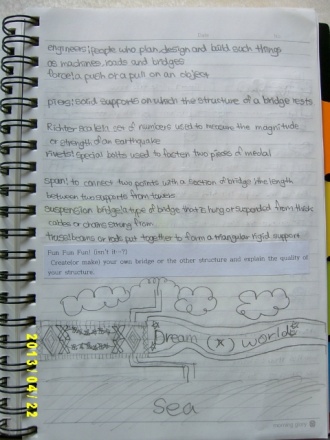 Date
engineers: people who plan, design and build such things
as machines, roads and bridges
force: a push or a pull on an object
piers: solid supports on which the structure of a bridge rests
Richter scale: a set of numbers used to measure the magnitude
or strength of an earthquake
rivets: special bolts used to fasten two pieces of medal
span: to connect two points with a section of bridge; the length
between two supports from towers
suspension bridge: a type of bridge that is hung or suspended from thick
cables or chains strung from
truss: beams or rods put together to form a triangular rigid support
Fun Fun Fun! (Isn't it~?)
Create(or make) your own bridge or the other structure and explain the quality of
your structure.
Dream (x) world
sea
2013/04/22